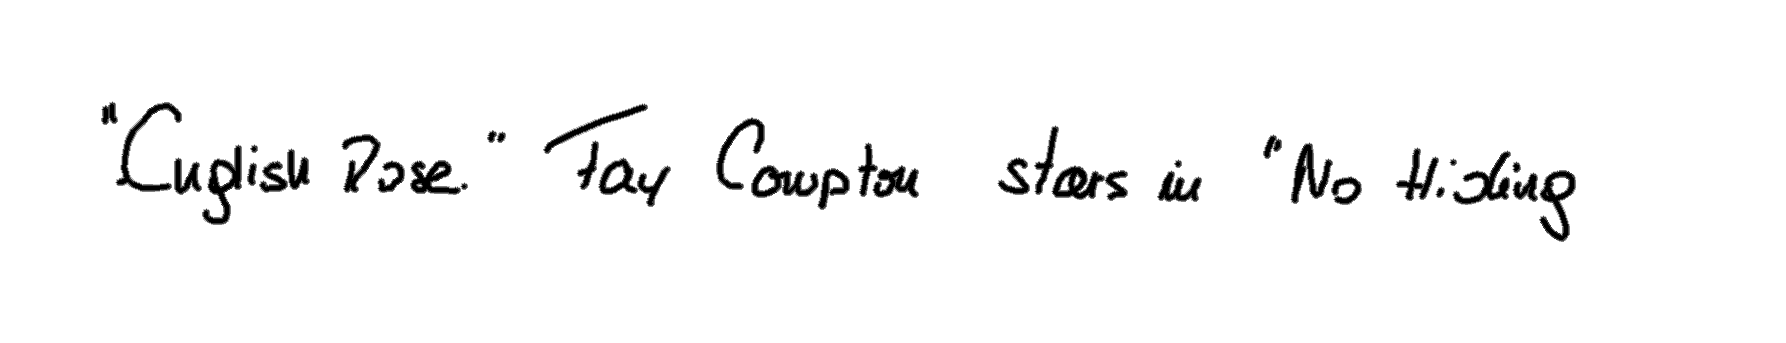 "English Rose." Fay Compton stars in "No Hiding